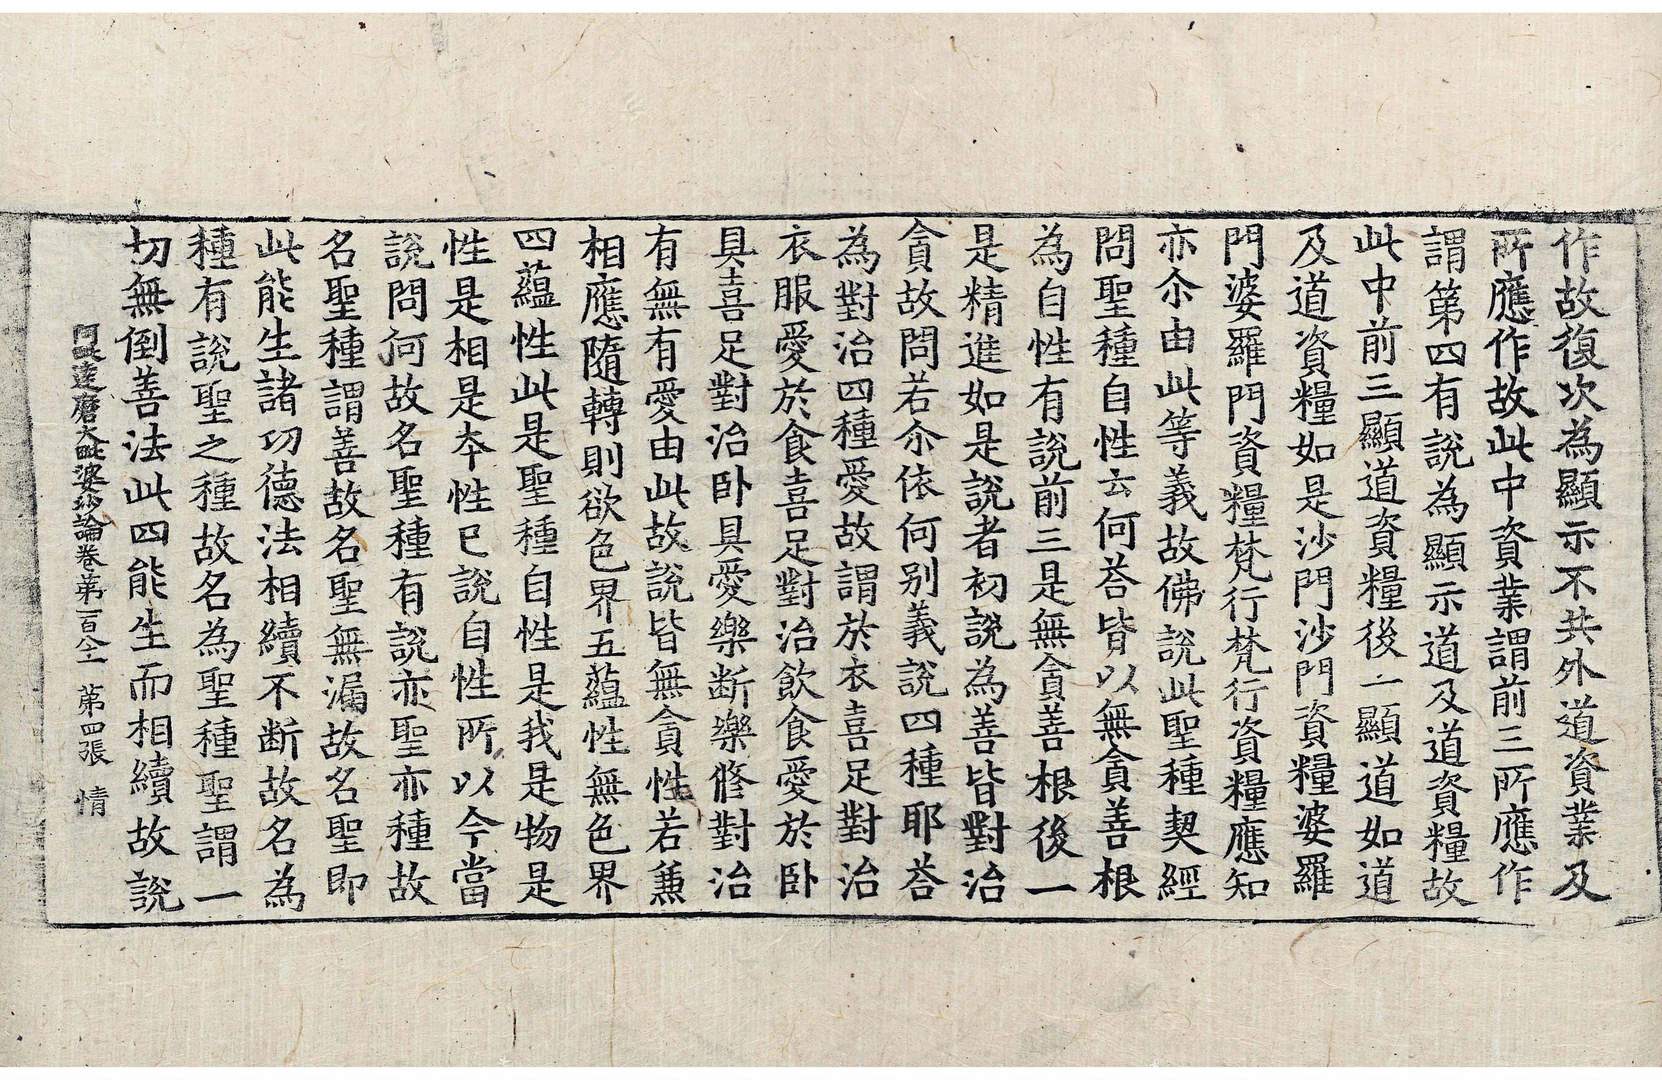 作故復次為顯示不共外道資業及
所應作故此中資業謂前三所應作
謂第四有說為顯示道及道資糧故
此中前三顯道資糧後一顯道如道
及道資糧如是沙門沙門資糧婆羅
門婆羅門資糧梵行梵行資糧應知
亦尒由此等義故佛說此聖種契經
問聖種自性云何荅皆以無貪善根
為自性有說前三是無貪善根後一
是精進如是說者初說為善皆對治
貪故問若尒依何別義說四種耶荅
為對治四種愛故謂於衣喜足對治
衣服愛於食喜足對治飲食愛於卧
具喜足對治卧具愛樂断樂修對治
有無有愛由此故說皆無貪性若兼
相應隨轉則欲色界五蘊性無色界
四蘊性此是聖種自性是我是物是
性是相是夲性已說自性所以今當
說問何故名聖種有說亦聖亦種故
名聖種謂善故名聖無漏故名聖即
此能生諸功德法相續不断故名為
種有說聖之種故名為聖種聖謂一
切無倒善法此四能生而相續故說
阿毗達磨大毗婆沙論卷第一百八十一 第四張 情